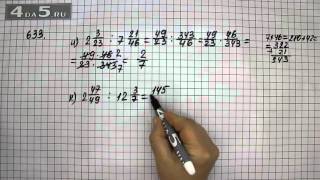 4DA5.RU
633.
и) 2 3/23 : 7 21/46 = 49/23 : 343/46 = 49/23 · 46/343 =
= 49·46/23·343 = 2/7
7·46=280+42=
= 322
+ 21
343
к) 2 47/49 : 12 3/7 = 145